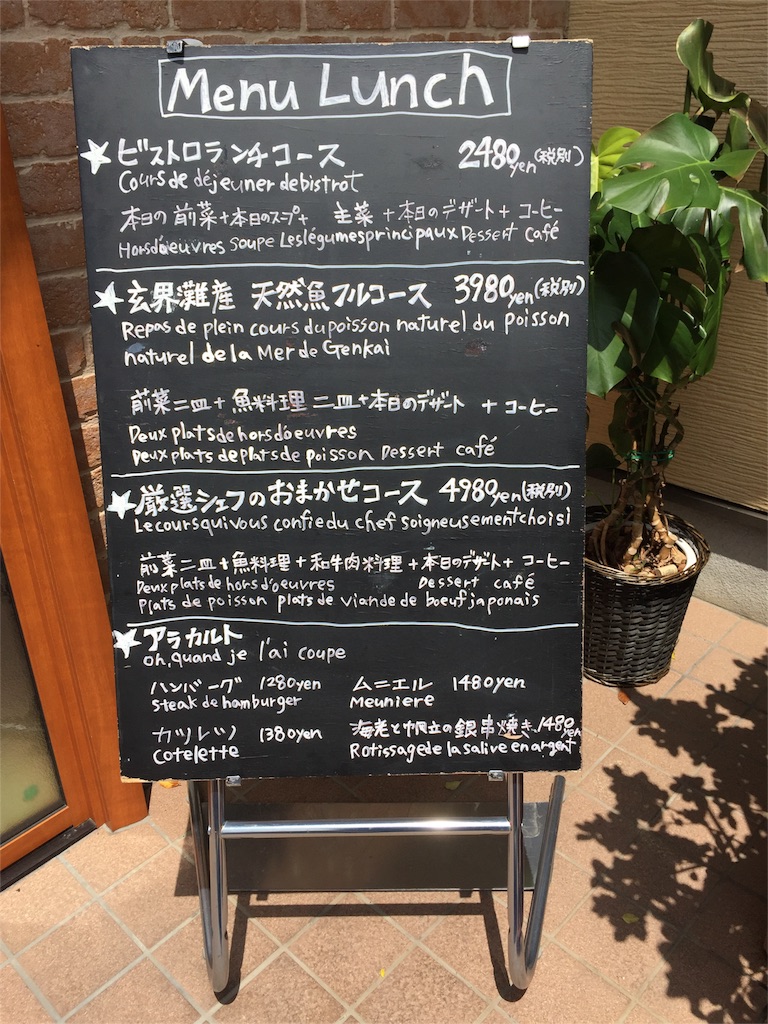 Menu Lunch
★ビストロランチコース 2480yen(税別)
Cours de déjeuner de bistrot
本日の前菜+本日のスープ+ 主菜+本日のデザート+コーヒー
Horsdóeuvres soupe Leslégumesprincipaux Dessert café
★玄界灘産 天然魚フルコース 3980yen(税別)
Repas de plein cours du poisson naturel du poisson
naturel de la Mer de Genkai
前菜二皿+魚料理二皿+本日のデザート +コーヒー
Deux plats de hors d'oeuvres
Deux plats de plats de poisson Dessert café
★厳選シェフのおまかせコース 4980yen(税別)
Le cours qui vous confie du chef soigneusement choisi
前菜二皿+魚料理+和牛肉料理+本日のデザート+コーヒー
Deux plats de hors d'oeuvres Dessert café
Plats de poisson plats de viande de boeuf japonais
★アラカルト
oh, quand je l'ai coupe
ハンバーグ 1280yen ムニエル 1480yen
Steak de hamburger Meuniere
カツレツ 1380yen 海老と帆立の銀串焼き 1480yen
Cotelette Rotissage de la salive en argent